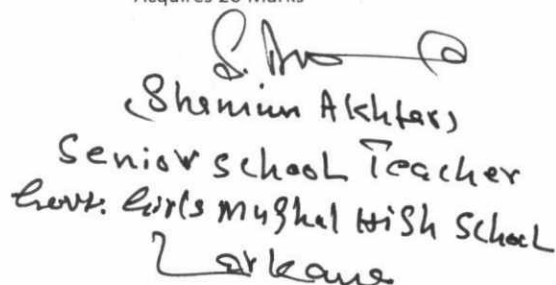 Acquires 20 Marks
(Shamim Akhtar)
Senior School Teacher
Govt. Girls Mughal High School
Larkana